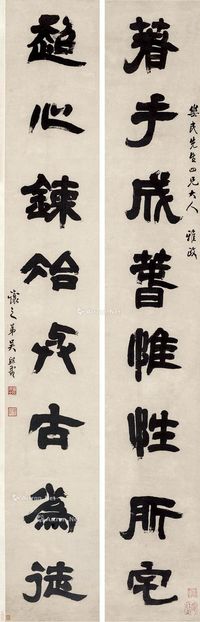 民先生四兄大人 雅政
著手成萅惟性所宅
超心鍊冶与古為徒
之弟吳熙載